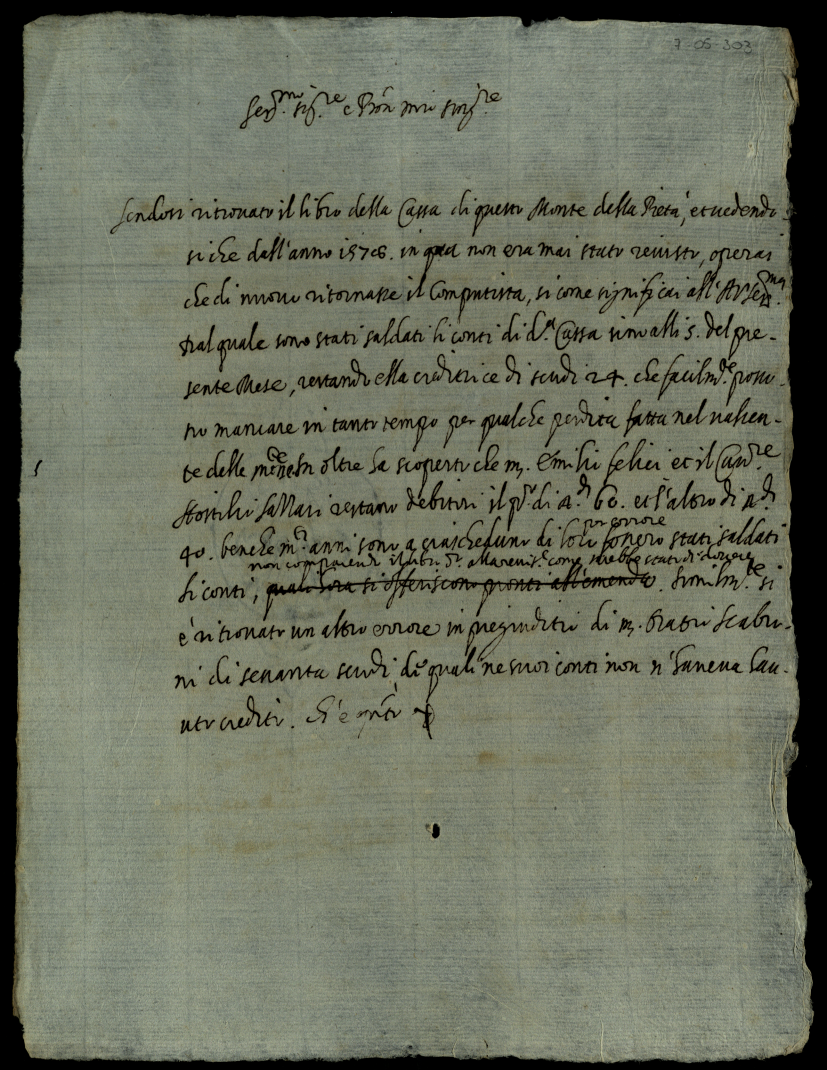 7-05-303
Ser.mo Sig.re e Pron mio sing.re
Sendosi ritrovato il libro della Cassa di questo Monte della Pietà, et vedendo
si che dall'anno 1578. in qua non era mai stato revisto, operai
che di nuovo ritornasse il Computista, si come significai all'A. V. Ser.ma
dal quale sono stati saldati li conti di d.a Cassa sino alli 5. del pre-
sente Mese, restando ella creditrice di scudi 24. che facilm.te posso-
no mancare in tanto tempo per qualche perdita fatta nel
te delle In oltre ha scoperto che m. Emilio felici et il Cav.re
Hostilio restano debitori il p.o di 60. et l'altro di
40. benche m.ti anni sono a ciascheduno di loro fossero stati saldati
per errore
non come sarebbe stato di dovere
li conti, quali hora si offeriscono pronti all'emenda. Similm.te si
è ritrovato un altro errore in pregiuditio di m.
ni di settanta scudi, de quali ne suoi conti non n'haveva hau-
uto credito. Ch'è q.nto